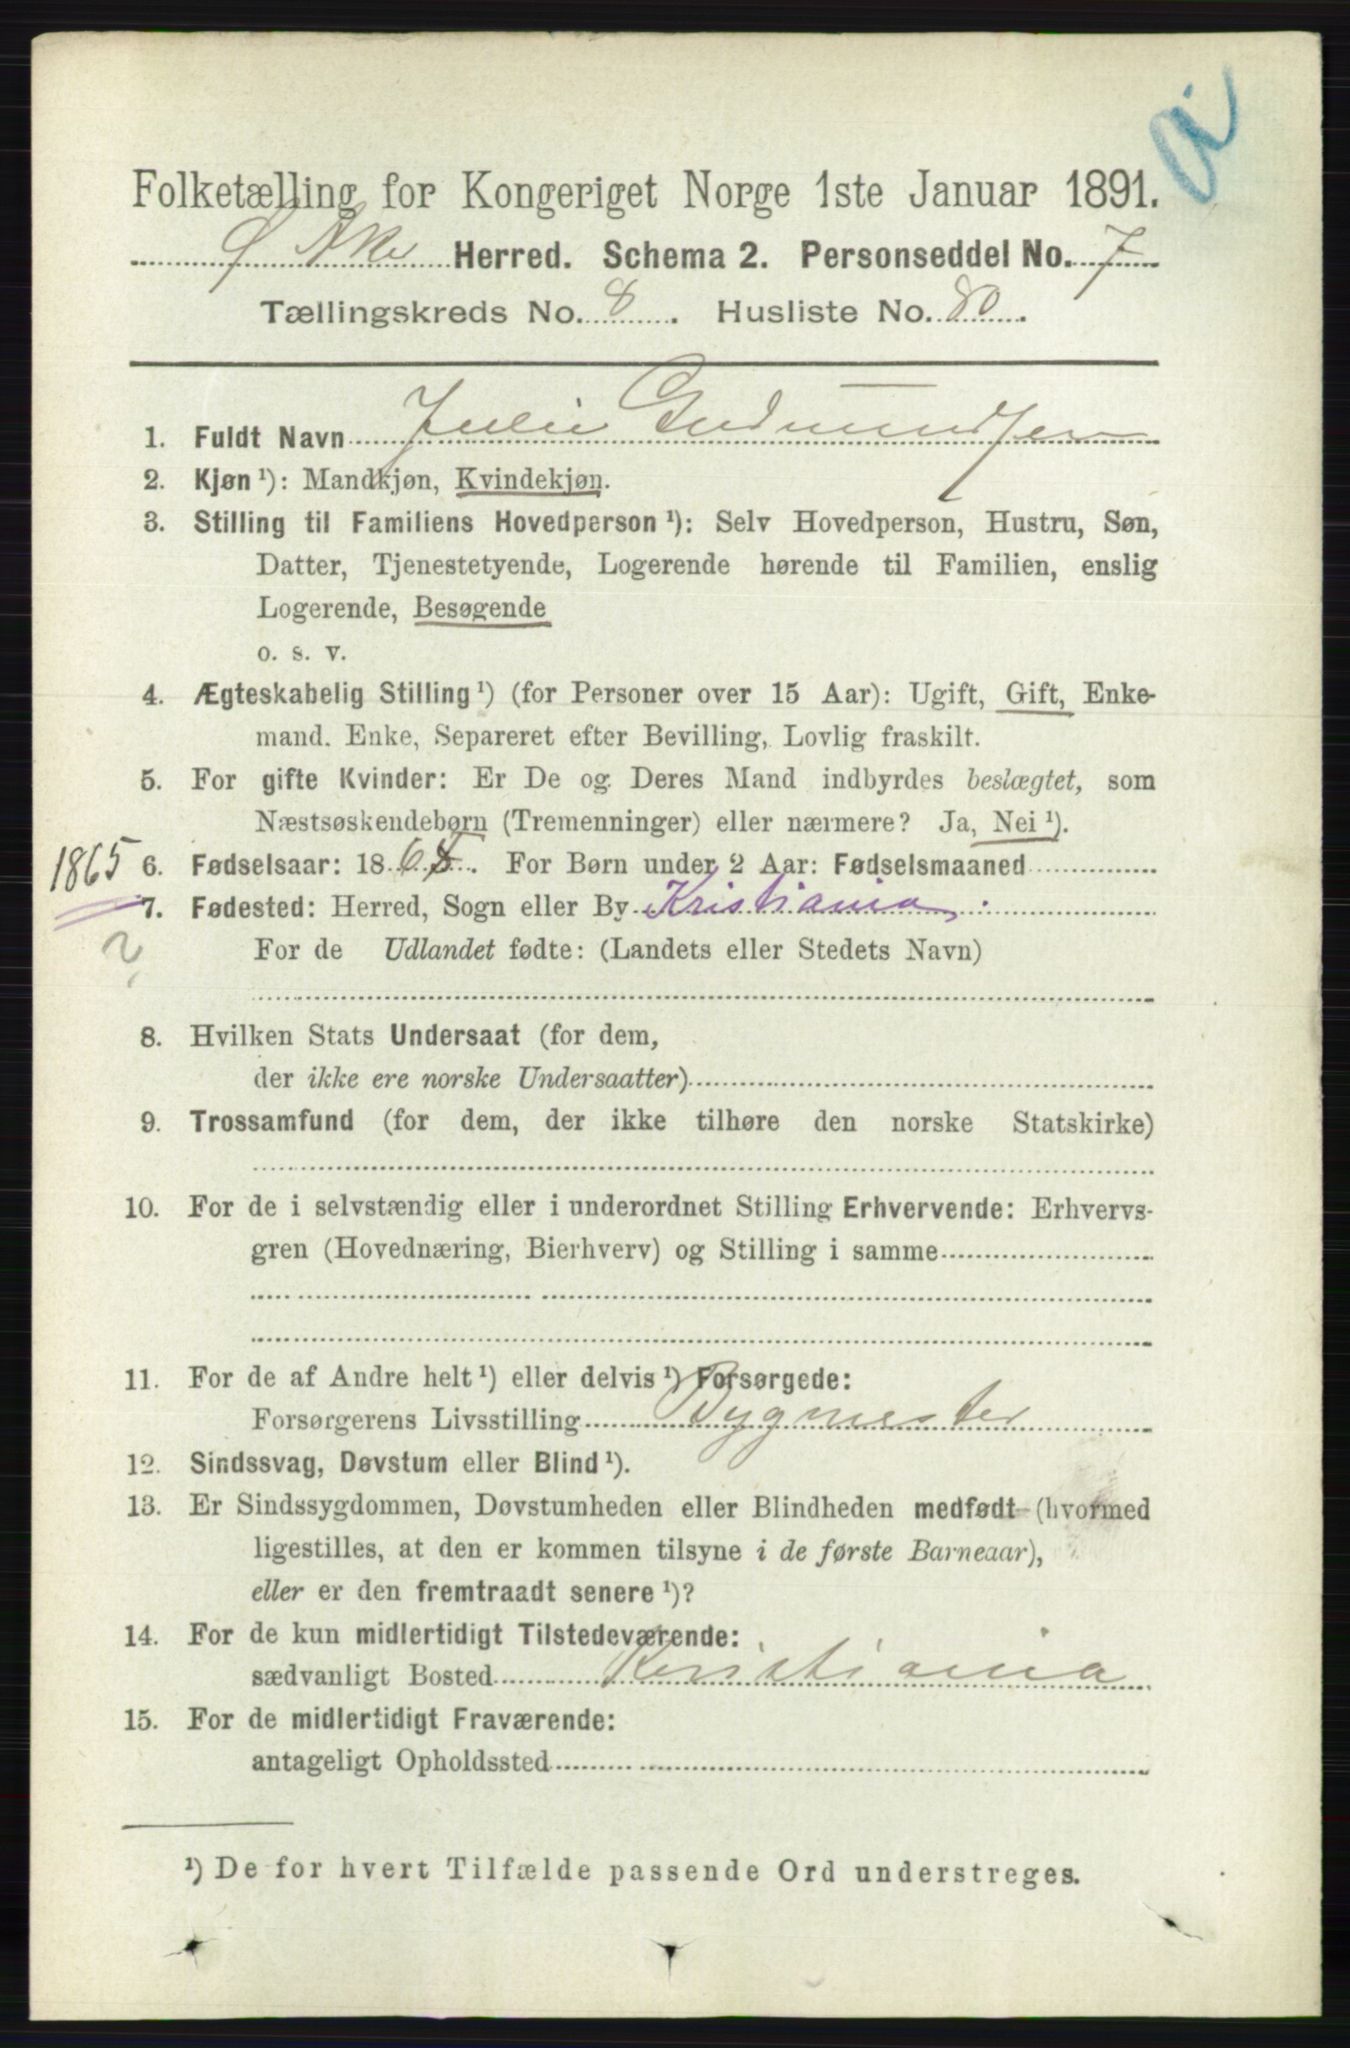 Folketælling for Kongeriget Norge 1ste Januar 1891.
Ø. Aker Herred. Schema 2. Personseddel No. 7
Tællingskreds No. 8. Husliste No. 80.
1. Fuldt Navn Julie Gudmundsen
2. Kjøn ¹): Mandkjøn, Kvindekjøn.
3. Stilling til Familiens Hovedperson ¹): Selv Hovedperson, Hustru, Søn,
Datter, Tjenestetyende, Logerende hørende til Familien, enslig
Logerende, Besøgende
o. s. v.
4. Ægteskabelig Stilling ¹) (for Personer over 15 Aar): Ugift, Gift, Enke-
mand. Enke, Separeret efter Bevilling, Lovlig fraskilt.
5. For gifte Kvinder: Er De og Deres Mand indbyrdes beslægtet, som
Næstsøskendebørn (Tremenninger) eller nærmere? Ja, Nei ¹).
1865 6. Fødselsaar: 1865. For Børn under 2 Aar: Fødselsmaaned
7. Fødested: Herred, Sogn eller By Kristiania.
?
For de Udlandet fødte: (Landets eller Stedets Navn)
8. Hvilken Stats Undersaat (for dem,
der ikke ere norske Undersaatter)
9. Trossamfund (for dem, der ikke tilhøre den norske Statskirke)
10. For de i selvstændig eller i underordnet Stilling Erhvervende: Erhvervs-
gren (Hovednæring, Bierhverv) og Stilling i samme
11. For de af Andre helt ¹) eller delvis ¹) Forsørgede:
Forsørgerens Livsstilling Bygmester
12. Sindssvag, Døvstum eller Blind ¹).
13. Er Sindssygdommen, Døvstumheden eller Blindheden medfødt (hvormed
ligestilles, at den er kommen tilsyne i de første Barneaar),
eller er den fremtraadt senere ¹)?
14. For de kun midlertidigt Tilstedeværende:
sædvanligt Bosted Kristiania
15. For de midlertidigt Fraværende:
antageligt Opholdssted
¹) De for hvert Tilfælde passende Ord understreges.